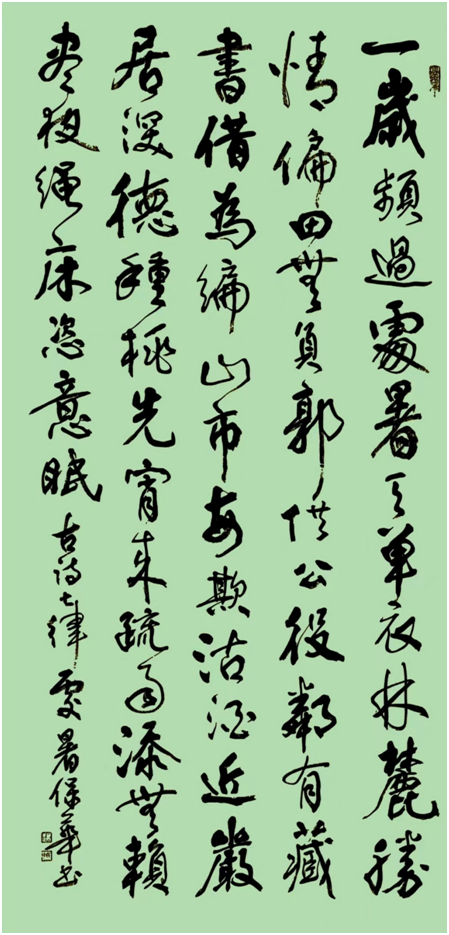 一歲頻過處暑天單衣林麓勝
情偏田無負郭供公役鄰有藏
書借為編山市每欺沽酒近巖
居深德種桃先宵來疏雨添無賴
尽夜绳床恣意眠 古诗七律 處暑保華书